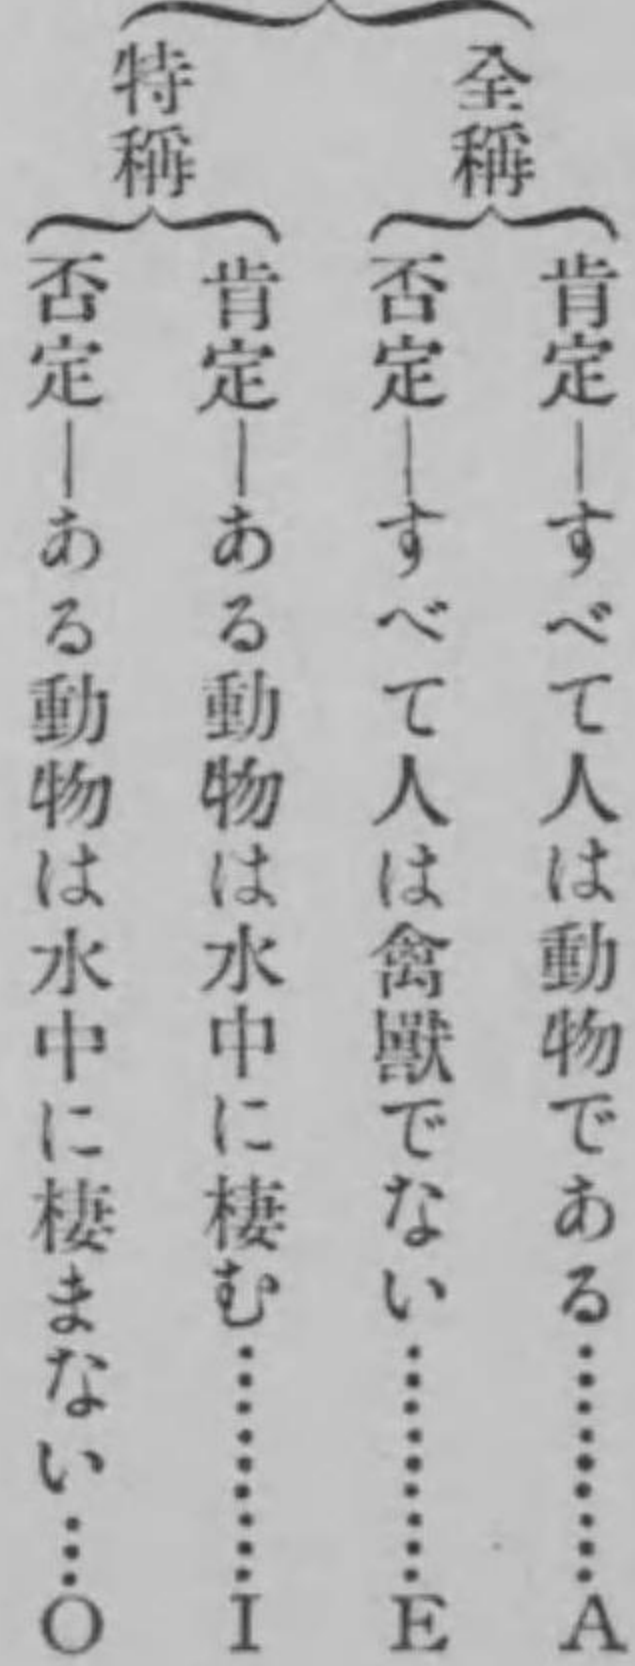 全稱
肯定—すべて人は動物である………A
否定—すべて人は禽獸でない………E
特稱
肯定—ある動物は水中に棲む………I
否定—ある動物は水中に棲まない…O